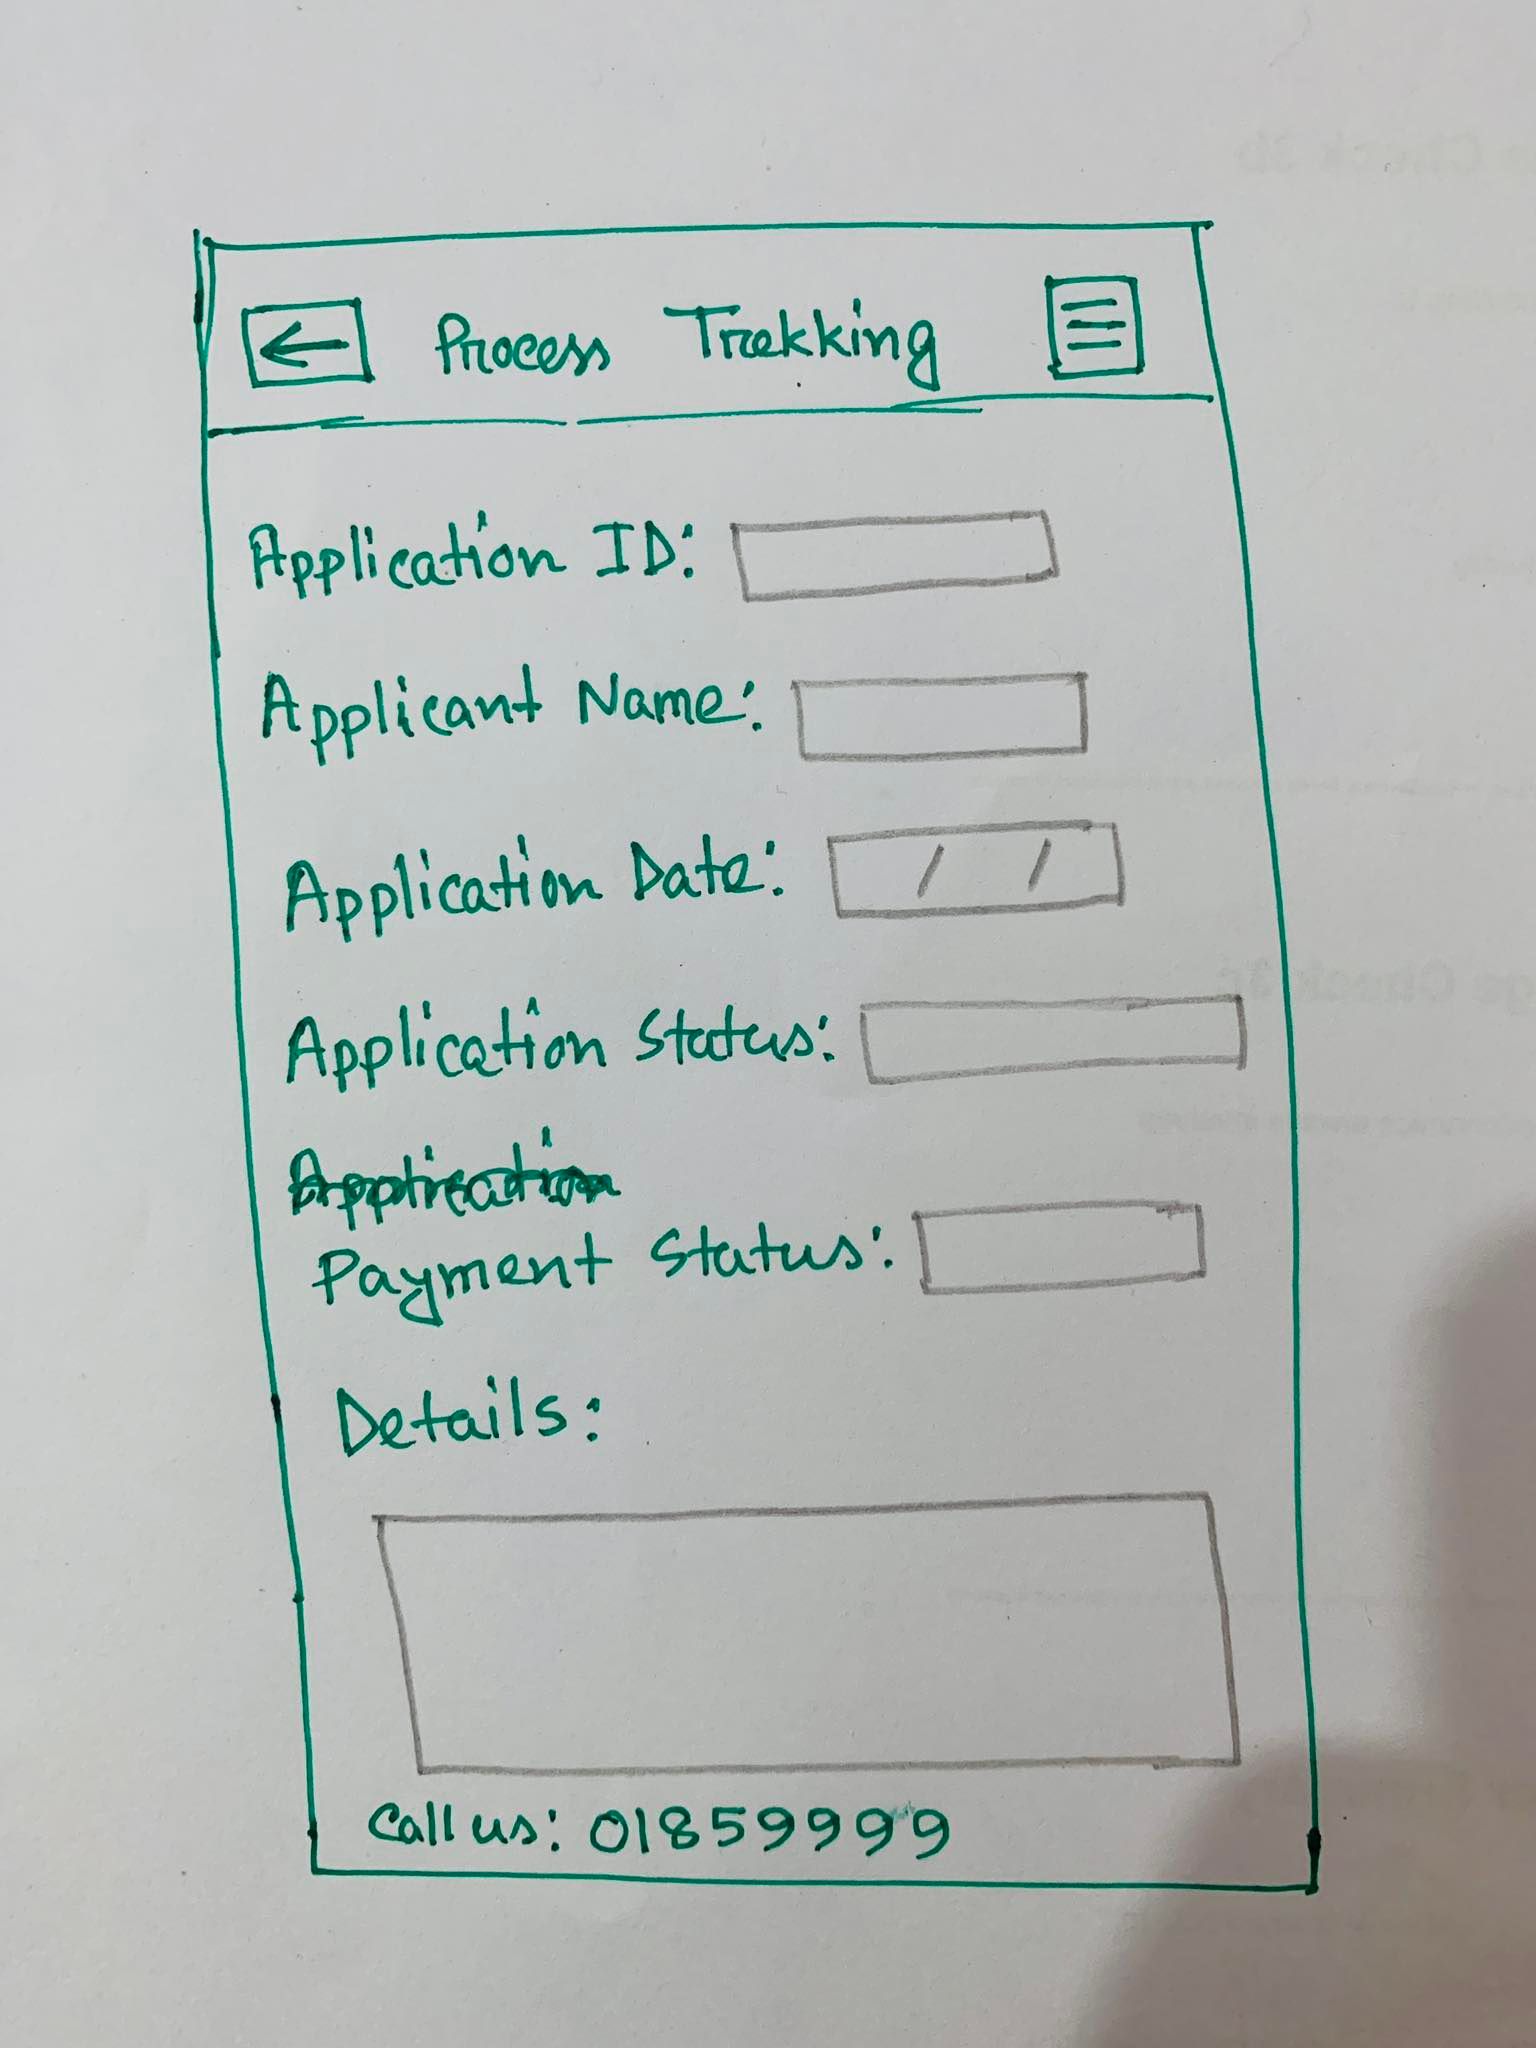 Process Trekking
Application ID:
Applicant Name:
Application Date: / /
Application Status:
Application
Payment Status:
Details:
Call us: 01859999